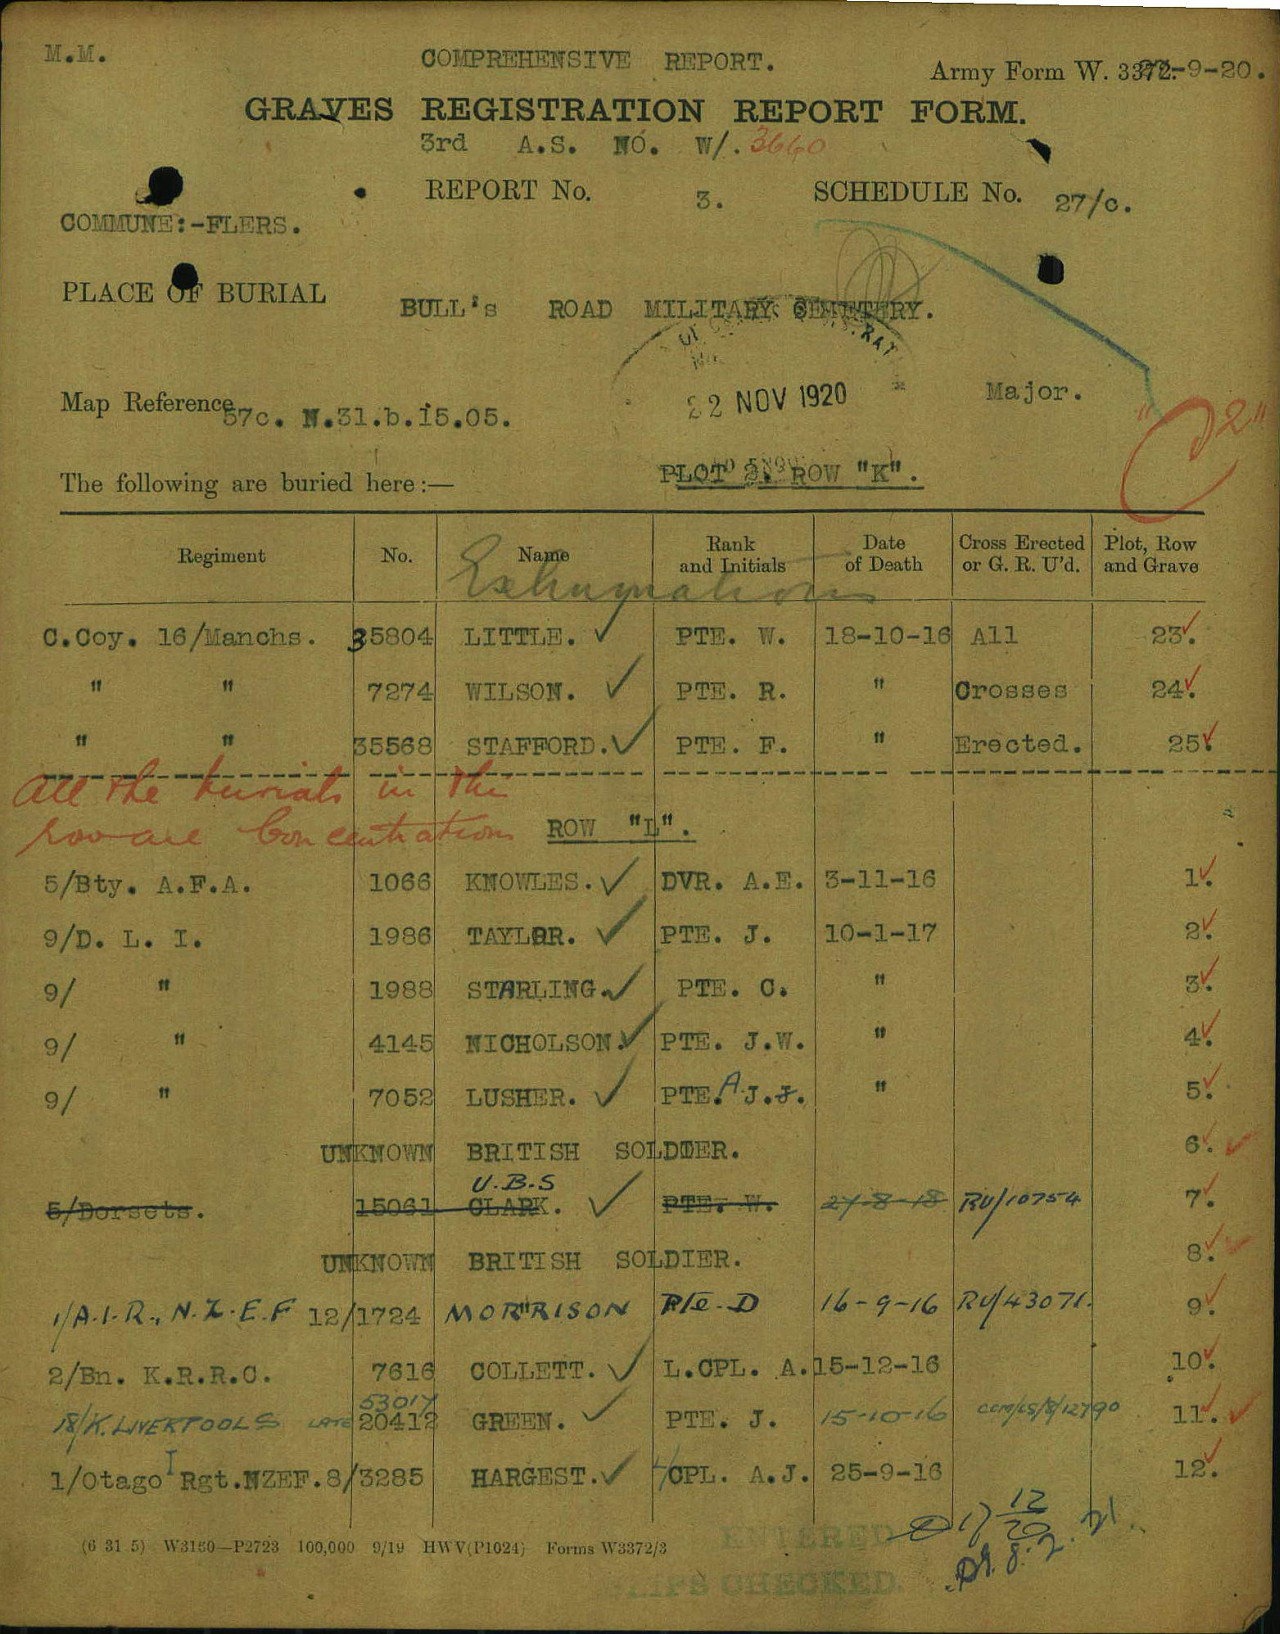 M.M.
COMPREHENSIVE REPORT.
Army Form W. 3372. -9-20.
GRAVES REGISTRATION REPORT FORM.
3rd A.S. NO. W/. 3660
REPORT No. 3. SCHEDULE No. 27/c.
COMMUNE:-FLERS.
PLACE OF BURIAL
BULL's ROAD MILITARY CEMETERY.
22 NOV 1920
Major.
Map Reference 57c. N.31.b.15.05.
"C2"
The following are buried here:— PLOT 2. ROW "K".
Regiment No. Name Rank and Initials Date of Death Cross Erected or G. R. U'd. Plot, Row and Grave
Exhumations
C.Coy. 16/Manchs. 35804 LITTLE. ✓ PTE. W. 18-10-16 All 23.
" " 7274 WILSON. ✓ PTE. R. " Crosses 24.
" " 35568 STAFFORD. ✓ PTE. F. " Erected. 25.
All the burials in the
row are Concentrations
ROW "L".
5/Bty. A.F.A. 1066 KNOWLES. ✓ DVR. A.E. 3-11-16 1.
9/D. L. I. 1986 TAYLOR. ✓ PTE. J. 10-1-17 2.
9/ " 1988 STARLING. ✓ PTE. C. " 3.
9/ " 4145 NICHOLSON. ✓ PTE. J.W. " 4.
9/ " 7052 LUSHER. ✓ PTE. A J.J. " 5.
UNKNOWN BRITISH SOLDIER. 6.
U.B.S
5/Dorsets. 15061 CLARK. ✓ PTE. W. 27-8-18 RU/10754 7.
UNKNOWN BRITISH SOLDIER. 8.
1/A.I.R., N.Z.E.F 12/1724 MORRISON Pte. D 16-9-16 RU/43071. 9.
2/Bn. K.R.R.C. 7616 COLLETT. ✓ L.CPL. A. 15-12-16 10.
53017
18/K. LIVERPOOLS LATE 20412 GREEN. ✓ PTE. J. 15-10-16 11.
1/Otago I Rgt.NZEF. 8/3285 HARGEST. ✓ CPL. A.J. 25-9-16 12.
17 12
20
(6 31 5) W3160—P2723 100,000 9/19 HWV(P1024) Forms W3372/3
ENTERED
SLIPS CHECKED.